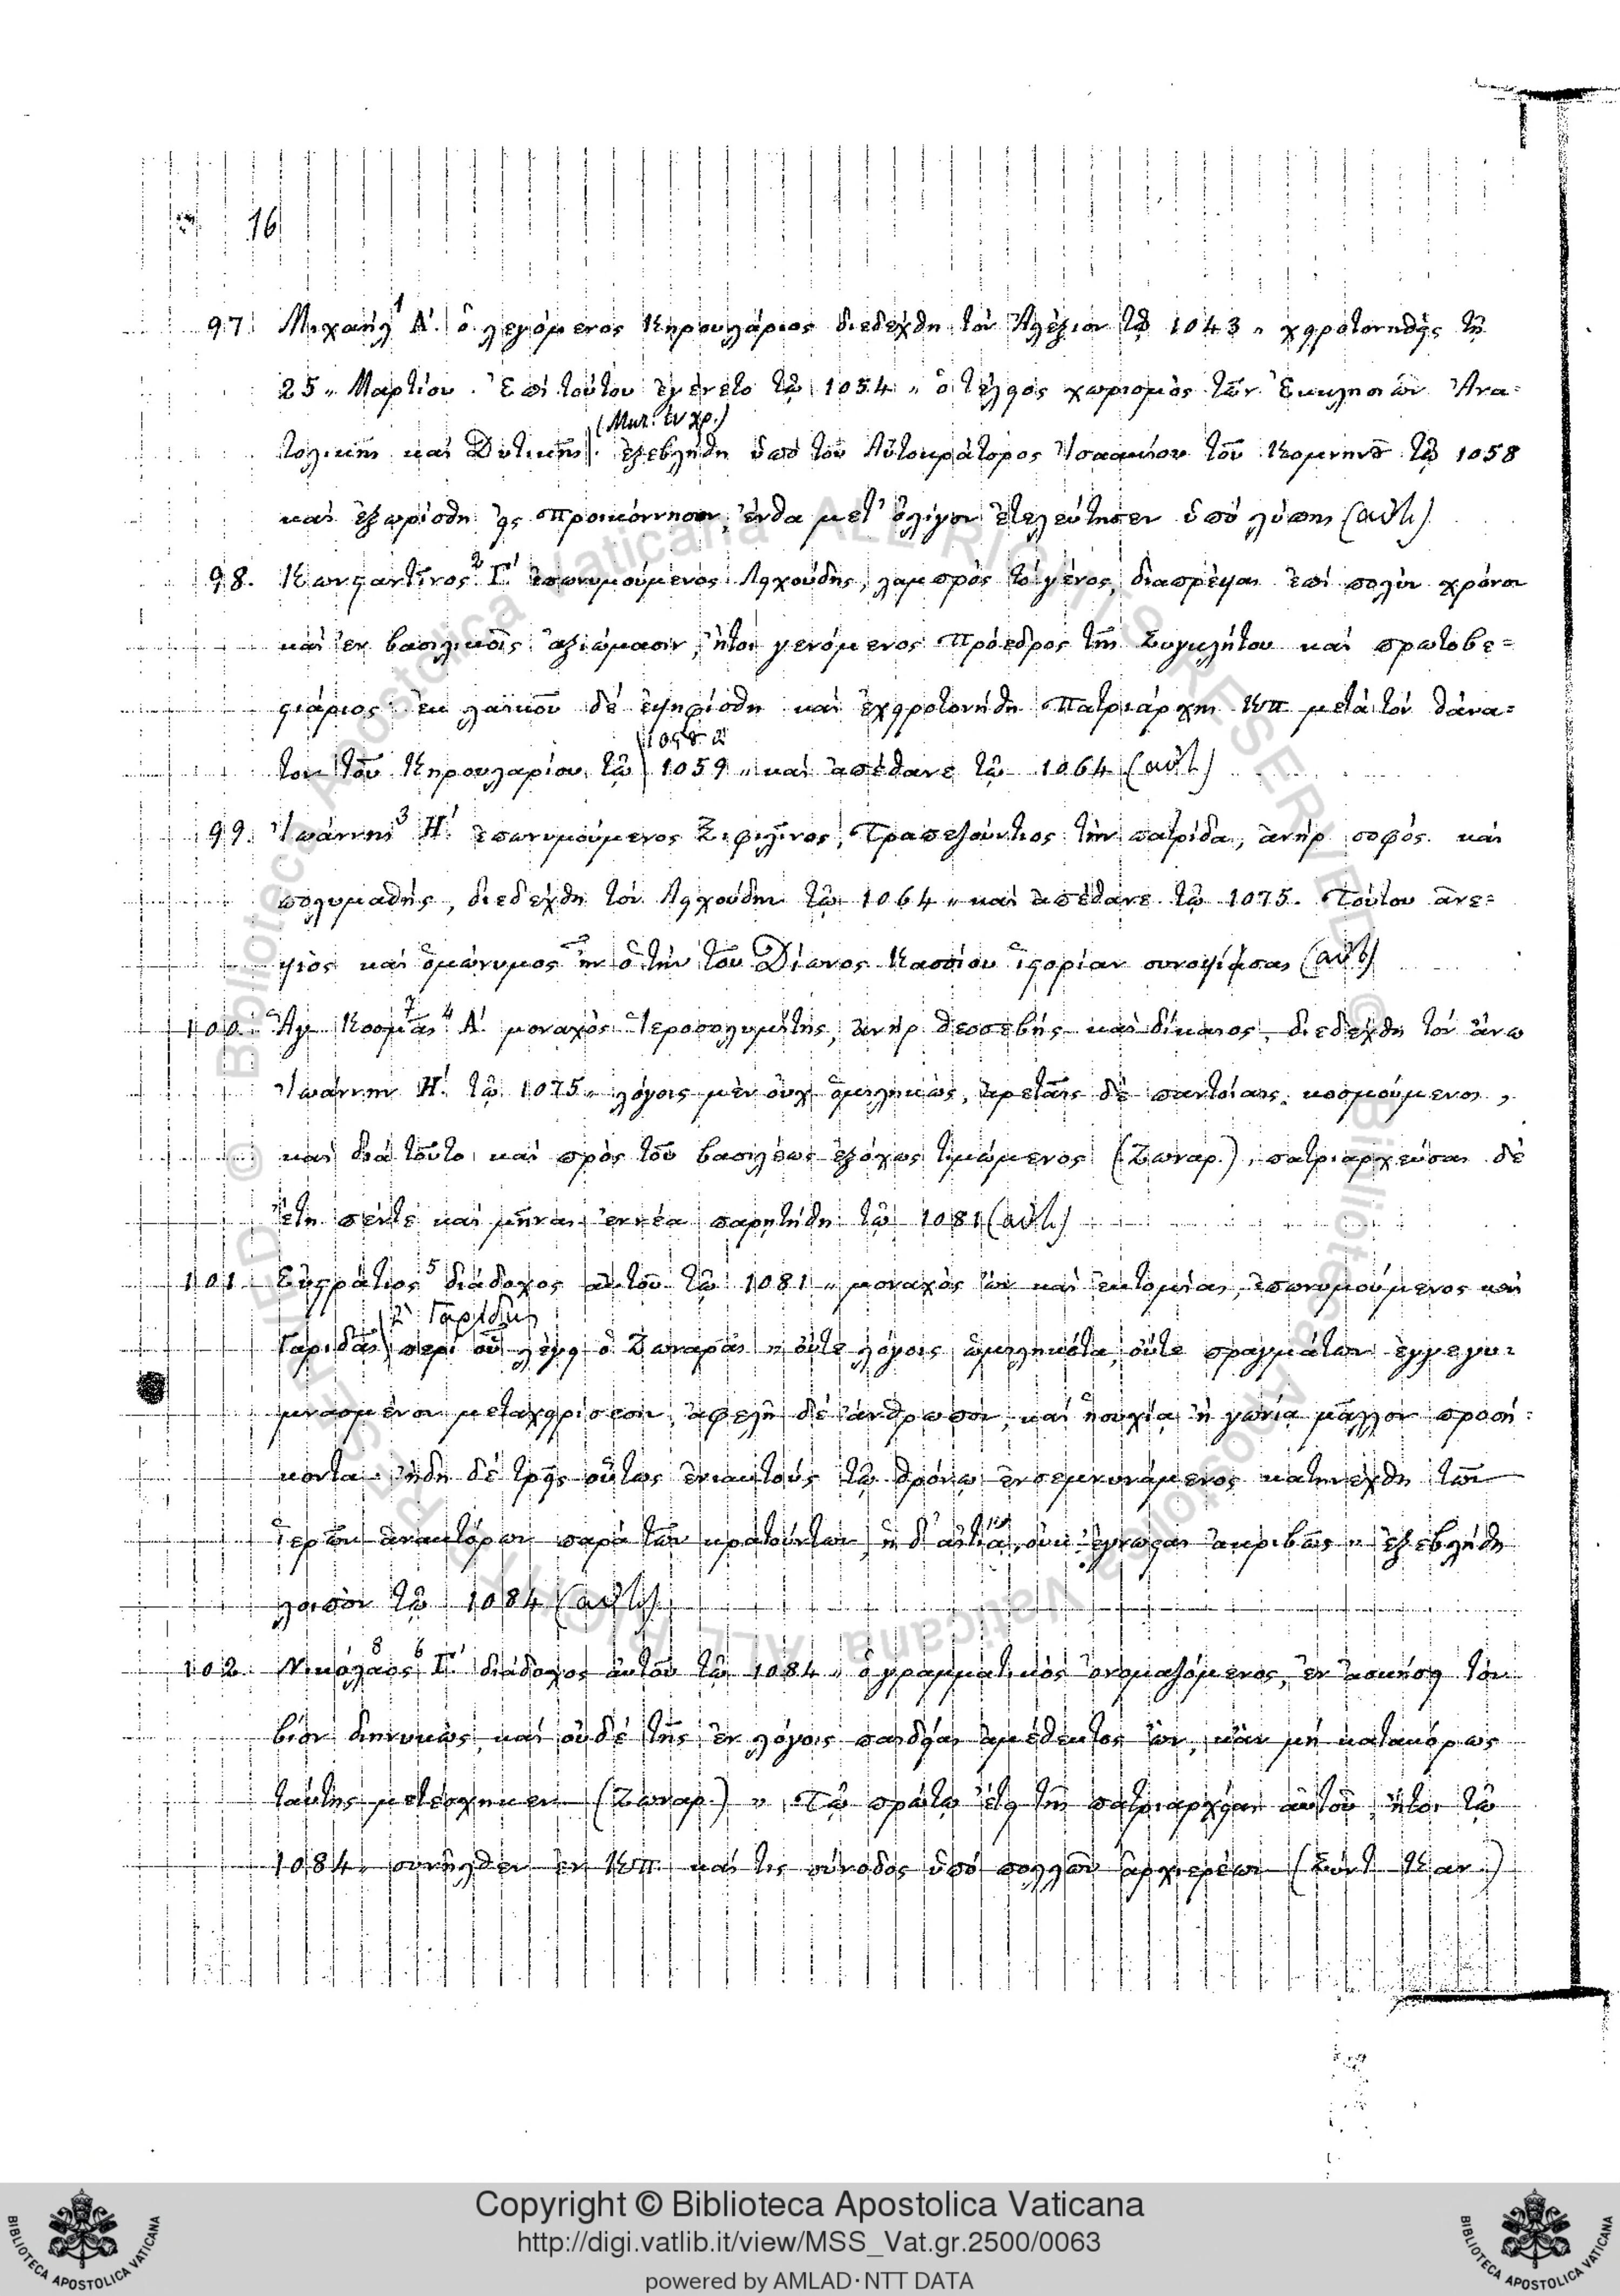 16
97. Μιχαήλ¹ Α΄. ὁ λεγόμενος Κηρουλάριος διεδέχθη τὸν Ἀλέξιον τῷ 1043 „ χειροτονηθεὶς τῇ
25 „ Μαρτίου. Ἐπὶ τούτου ἐγένετο τῷ 1054 „ ὁ τέλειος χωρισμὸς τῶν Ἐκκλησιῶν Ἀνα=
(Μελ. ἐν χρ.)
τολικῆς καὶ Δυτικῆς. ἐξεβλήθη ὑπὸ τοῦ Αὐτοκράτορος Ἰσαακίου τοῦ Κομνηνοῦ τῷ 1058
καὶ ἐξωρίσθη εἰς Προικόννησον, ἔνθα μετ' ὀλίγον ἐτελεύτησεν ὑπὸ λύπης (αὐτ.)
98. Κωνσταντῖνος² Γ΄. ἐπωνυμούμενος Λειχούδης, λαμπρὸς τὸ γένος, διαπρέψας ἐπὶ πολὺν χρόνον
καὶ ἐν βασιλικοῖς ἀξιώμασιν, ἤτοι γενόμενος Πρόεδρος τῆς Συγκλήτου καὶ πρωτοβε=
στιάριος· ἐκ λαϊκοῦ δὲ ἐψηφίσθη καὶ ἐχειροτονήθη Πατριάρχης Κπ μετὰ τὸν θάνα=
1058 ἢ
τον τοῦ Κηρουλαρίου τῷ 1059 „ καὶ ἀπέθανε τῷ 1064 (αὐτ.)
99. Ἰωάννης³ Η΄. ἐπωνυμούμενος Ξιφιλῖνος, Τραπεζούντιος τὴν πατρίδα, ἀνὴρ σοφὸς καὶ
πολυμαθής, διεδέχθη τὸν Λειχούδην τῷ 1064 „ καὶ ἀπέθανε τῷ 1075. Τούτου ἀνε=
ψιὸς καὶ ὁμώνυμος ἦν ὁ τὴν τοῦ Δίωνος Κασσίου ἱστορίαν συνοψίσας (αὐτ)
100. Ἅγ. Κοσμᾶς⁷ ⁴ Α΄. μοναχὸς Ἱεροσολυμίτης, ἀνὴρ θεοσεβὴς καὶ δίκαιος, διεδέχθη τὸν ἄνω
Ἰωάννην Η΄. τῷ 1075 „ λόγοις μὲν οὐχ ὡμιληκώς, ἀρεταῖς δὲ παντοίαις κοσμούμενος,
καὶ διὰ τοῦτο καὶ πρὸς τοῦ βασιλέως ἐξόχως τιμώμενος (Ζωναρ.), πατριαρχεύσας δὲ
ἔτη πέντε καὶ μῆνας ἐννέα παρῃτήθη τῷ 1081 (αὐτ.)
101. Εὐστράτιος⁵ διάδοχος αὐτοῦ τῷ 1081 „ μοναχὸς ὢν καὶ ἐκτομίας, ἐπωνυμούμενος καὶ
ἢ Γαρίδης
Γαριδᾶς, περὶ οὗ λέγει ὁ Ζωναρᾶς „ οὔτε λόγοις ὡμιληκότα, οὔτε πραγμάτων ἐγγεγυ=
μνασμένον μεταχειρίσεσιν, ἀφελῆ δὲ ἄνθρωπον, καὶ ἡσυχίᾳ ἢ γωνίᾳ μᾶλλον προσή=
κοντα· ἤδη δὲ τρεῖς οὗτος ἐνιαυτοὺς τῷ θρόνῳ ἐνσεμνυνάμενος κατηνέχθη τῶν
ἱερῶν ἀνακτόρων παρὰ τῶν κρατούντων, ἡ δ' αἰτία οὐκ ἔγνωσται ἀκριβῶς „ ἐξεβλήθη
λοιπὸν τῷ 1084 (αὐτ.)
102. Νικόλαος⁸ ⁶ Γ΄. διάδοχος αὐτοῦ τῷ 1084 „ ὁ γραμματικὸς ὀνομαζόμενος, ἐν ἀσκήσει τὸν
βίον διηνυκώς, καὶ οὐδὲ τῆς ἐν λόγοις παιδείας ἀμέθεκτος ὤν, κἂν μὴ κατακόρως
ταύτης μετέσχηκεν (Ζωναρ.) „ Τῷ πρώτῳ ἔτει τῆς πατριαρχείας αὐτοῦ, ἤτοι τῷ
1084 „ συνῆλθεν ἐν Κπ. καί τις σύνοδος ὑπὸ πολλῶν ἀρχιερέων (Σύντ. Καν.)
Copyright © Biblioteca Apostolica Vaticana
http://digi.vatlib.it/view/MSS_Vat.gr.2500/0063
powered by AMLAD·NTT DATA
BIBLIOTECA APOSTOLICA VATICANA
BIBLIOTECA APOSTOLICA VATICANA